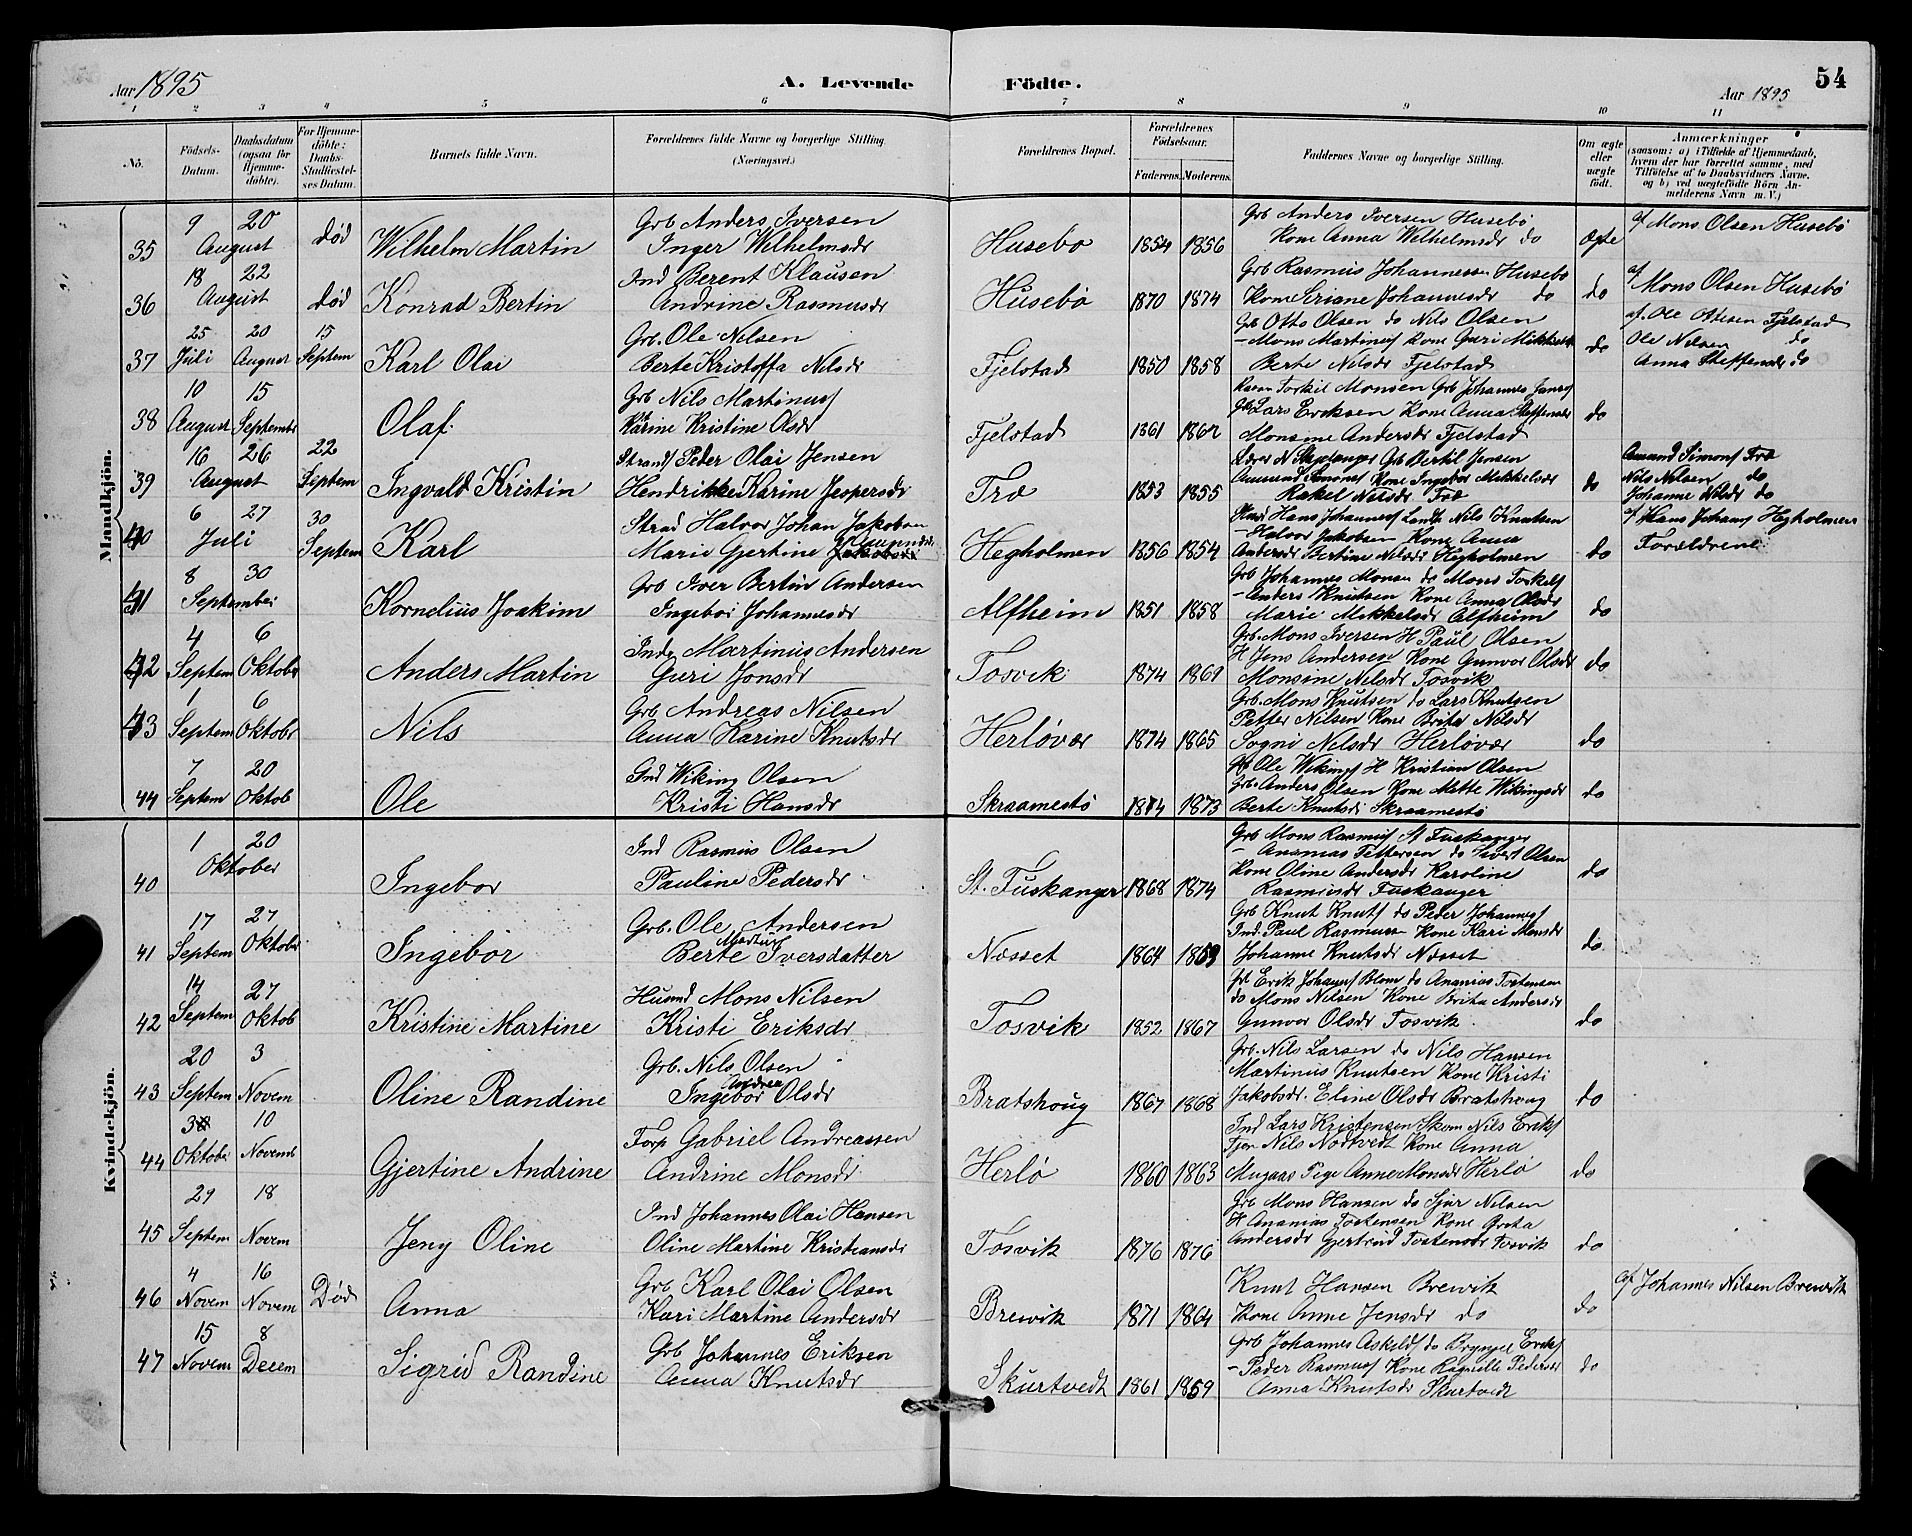 Aar 1895
A. Levende Födte.
Aar 1895
54
1 2 3 4 5 6 7 8 9 10 11
No.
Födsels-Datum.
Daabsdatum (ogsaa for Hjemme-döbte).
For Hjemme-döbte: Daabs-Stadfæstel-ses Datum.
Barnets fulde Navn.
Forældrenes fulde Navne og borgerlige Stilling (Næringsvei.)
Forældrenes Bopæl.
Forældrenes Födselsaar.
Faderens. Moderens.
Faddernes Navne og borgerlige Stilling.
Om ægte eller uægte födt.
Anmærkninger (saasom: a) i Tilfælde af Hjemmedaab, hvem der har forrettet samme, med Tilföielse af to Daabsvidners Navne, og b) ved uægtefödte Börn An-melderens Navn m. V.)
Mandkjön.
35 9 August 20 død Wilhelm Martin
Grb Anders Iversen
Inger Wilhelmsdr
Husebø 1854 1856
Grb Anders Iversen Husebø
Kone Anna Wilhelmsdr do
Ægte
af Mons Olsen Husebø
36 18 August 22 død Konrad Bertin
Ind Berent Klausen
Andrine Rasmusdr
Husebø 1870 1874
Grb Rasmus Johannessen Husebø
Kone Seriane Johannesdr do
do
af Mons Olsen Husebø
37 25 Juli 20 August 15 Septem Karl Olai
Grb. Ole Nilsen
Berte Kristoffa Nilsdr
Fjelstad 1850 1858
Grb Otto Olsen do Nils Olsen
- Mons Martinus Kone Guri Mikkelsdr
Berte Nilsdr Fjelstad
do
af. Ole Olesen Fjelstad
Ole Nilsen do
Anna Steffensdr do
38 10 August 15 Septembr Olaf.
Grb Nils Martinus
Karine Kristine Olsdr
Fjelstad 1861
Torkil Monsen Grb Johannes
Grb Lars Eriksen Kone Anna Steffensdr
Monsine Andersdr Fjelstad
do
39 16 August 26 22 Septem Ingvald Kristin
Strands Peder Olai Jensen
Hendrikke Karine Jespersdr
Træ 1853 1855
Grb Bertil Jensen
Amund Simons Kone Ingebor Mikkelsdr
Rakel Nilsdr Træ
do
Amund Simons Træ
Nils Nilsen do
Johanne Nilsdr do
40 6 Juli 27 30 Septem Karl
Strad Halvor Johan Jakobsen
Marie Gjertine
Hegholmen 1856 1854
Hans Johannes Nils Knutsen
- Halvor Jakobsen Kone Anna
Andersdr Bertine Nilsdr Hegholmen
do
af Hans Johans Hegholmen
Forældrene
41 8 September 30 Kornelius Joakim
Grb Iver Bertin Andersen
Ingebor Johannesdr
Alfheim 1851 1858
Grb Johannes Monsen do Mons Torkels
- Anders Knutsen Kone Anna Olsdr
Marie Mikkelsdr Alfheim
do
42 4 Septem 6 Oktober Anders Martin
Inds Martinus Andersen
Guri Jonsdr
Tosvik 1874 1869
Grb. Mons Iversen H Paul Olsen
H Jens Andersen Kone Gunvor Olsdr
Monsine Nilsdr Tosvik
do
43 1 Septem 6 Oktobr Nils
Grb Andreas Nilsen
Anna Karine Knutsdr
Herløvær 1874 1865
Grb. Mons Knutsen do Lars Knutsen
Petter Nilsen Kone Brita Nilsdr
Sogni Nilsdr Herløvær
do
44 7 Septem 20 Oktob Ole
Ind Wiking Olsen
Kristi Hansdr
Skraamestø 1874 1873
Ole Wikings H Kristian Olsen
Grb. Anders Olsen Kone Mette Wikingsdr
Berte Knutsdr Skraamestø
do
Kvindekjön.
40 1 Oktober 20 Ingebor
Ind Rasmus Olsen
Pauline Pedersdr
St. Tuskanger 1868 1874
Grb Mons Rasmus St Tuskanger
- Ananias Pettersen do Sivert Olsen
Kone Oline Andersdr Karoline
Rasmusdr Tuskanger
do
41 17 Septem 27 Oktober Ingebor
Grb. Ole Andersen
Berte Martine Iversdatter
Næsset 1864 1859
Grb Knut Knuts do Peder Johannes
Ind. Paul Rasmusen Kone Kari Monsdr
Johanne Knutsdr Næsset
do
42 14 Septem 27 Oktob Kristine Martine
Husmd Mons Nilsen
Kristi Eriksdr
Tosvik 1852 1867
Grb Erik Johans Blom do Ananias Torstensen
do Mons Nilsen Kone Brita Andersdr
Gunvor Olsdr Tosvik.
do
43 20 Septem 3 Novem Oline Randine
Grb. Nils Olsen
Ingebor Andrea Olsdr
Bratshoug 1867 1868
Grb. Nils Larsen do Nils Hansen
Martinus Knutsen Kone Kristi
Jakobsdr. Eline Olsdr Bratshoug
do
44 3 Oktober 10 Novemb Gjertine Andrine
Forp Gabriel Andreassen
Andrine Monsdr
Herlø 1860 1863
Ind Lars Kristensen Skom Nils Eriks
Nils Nodtvedt Kone Anna
Pige Anne Monsdr Herlø
do
45 29 Septem 18 Novem Jeny Oline
Ind Johannes Olai Hansen
Oline Martine Kristiansdr
Tosvik 1876 1876
Grb Mons Hansen do Sjur Nilsen
H Ananias Torstensen Kone Brita
Andersdr Gjertrud Torstensdr Tosvik
do
46 4 Novem 16 Novem Død Anna
Grb Karl Olai Olsen
Kari Martine Andersdr
Brewik 1871 1864
Knut Hansen Brewik
Kone Anne Jensdr do
do
af Johannes Nilsen Brewik
47 15 Novem 8 Decem Sigrid Randine
Grb Johannes Eriksen
Anna Knutsdr
Skurtvedt 1861 1859
Grb Johannes Askelds do Brynjel Eriks
- Peder Rasmus Kone Ragnille Pedersdr
Anna Knutsdr Skurtvedt
do